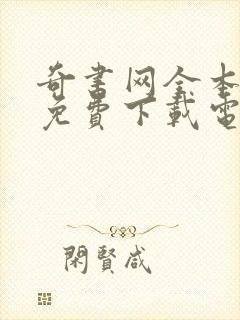 奇書网全本
免費下載電
閑賢咸